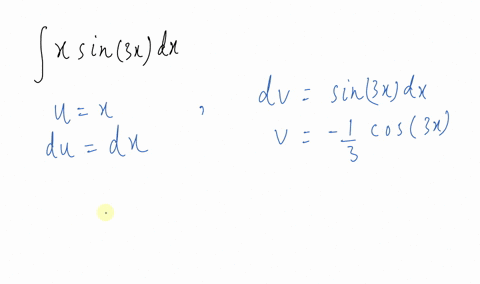 ∫ x sin(3x) dx
u = x , dv = sin(3x) dx
du = dx v = -1/3 cos(3x)